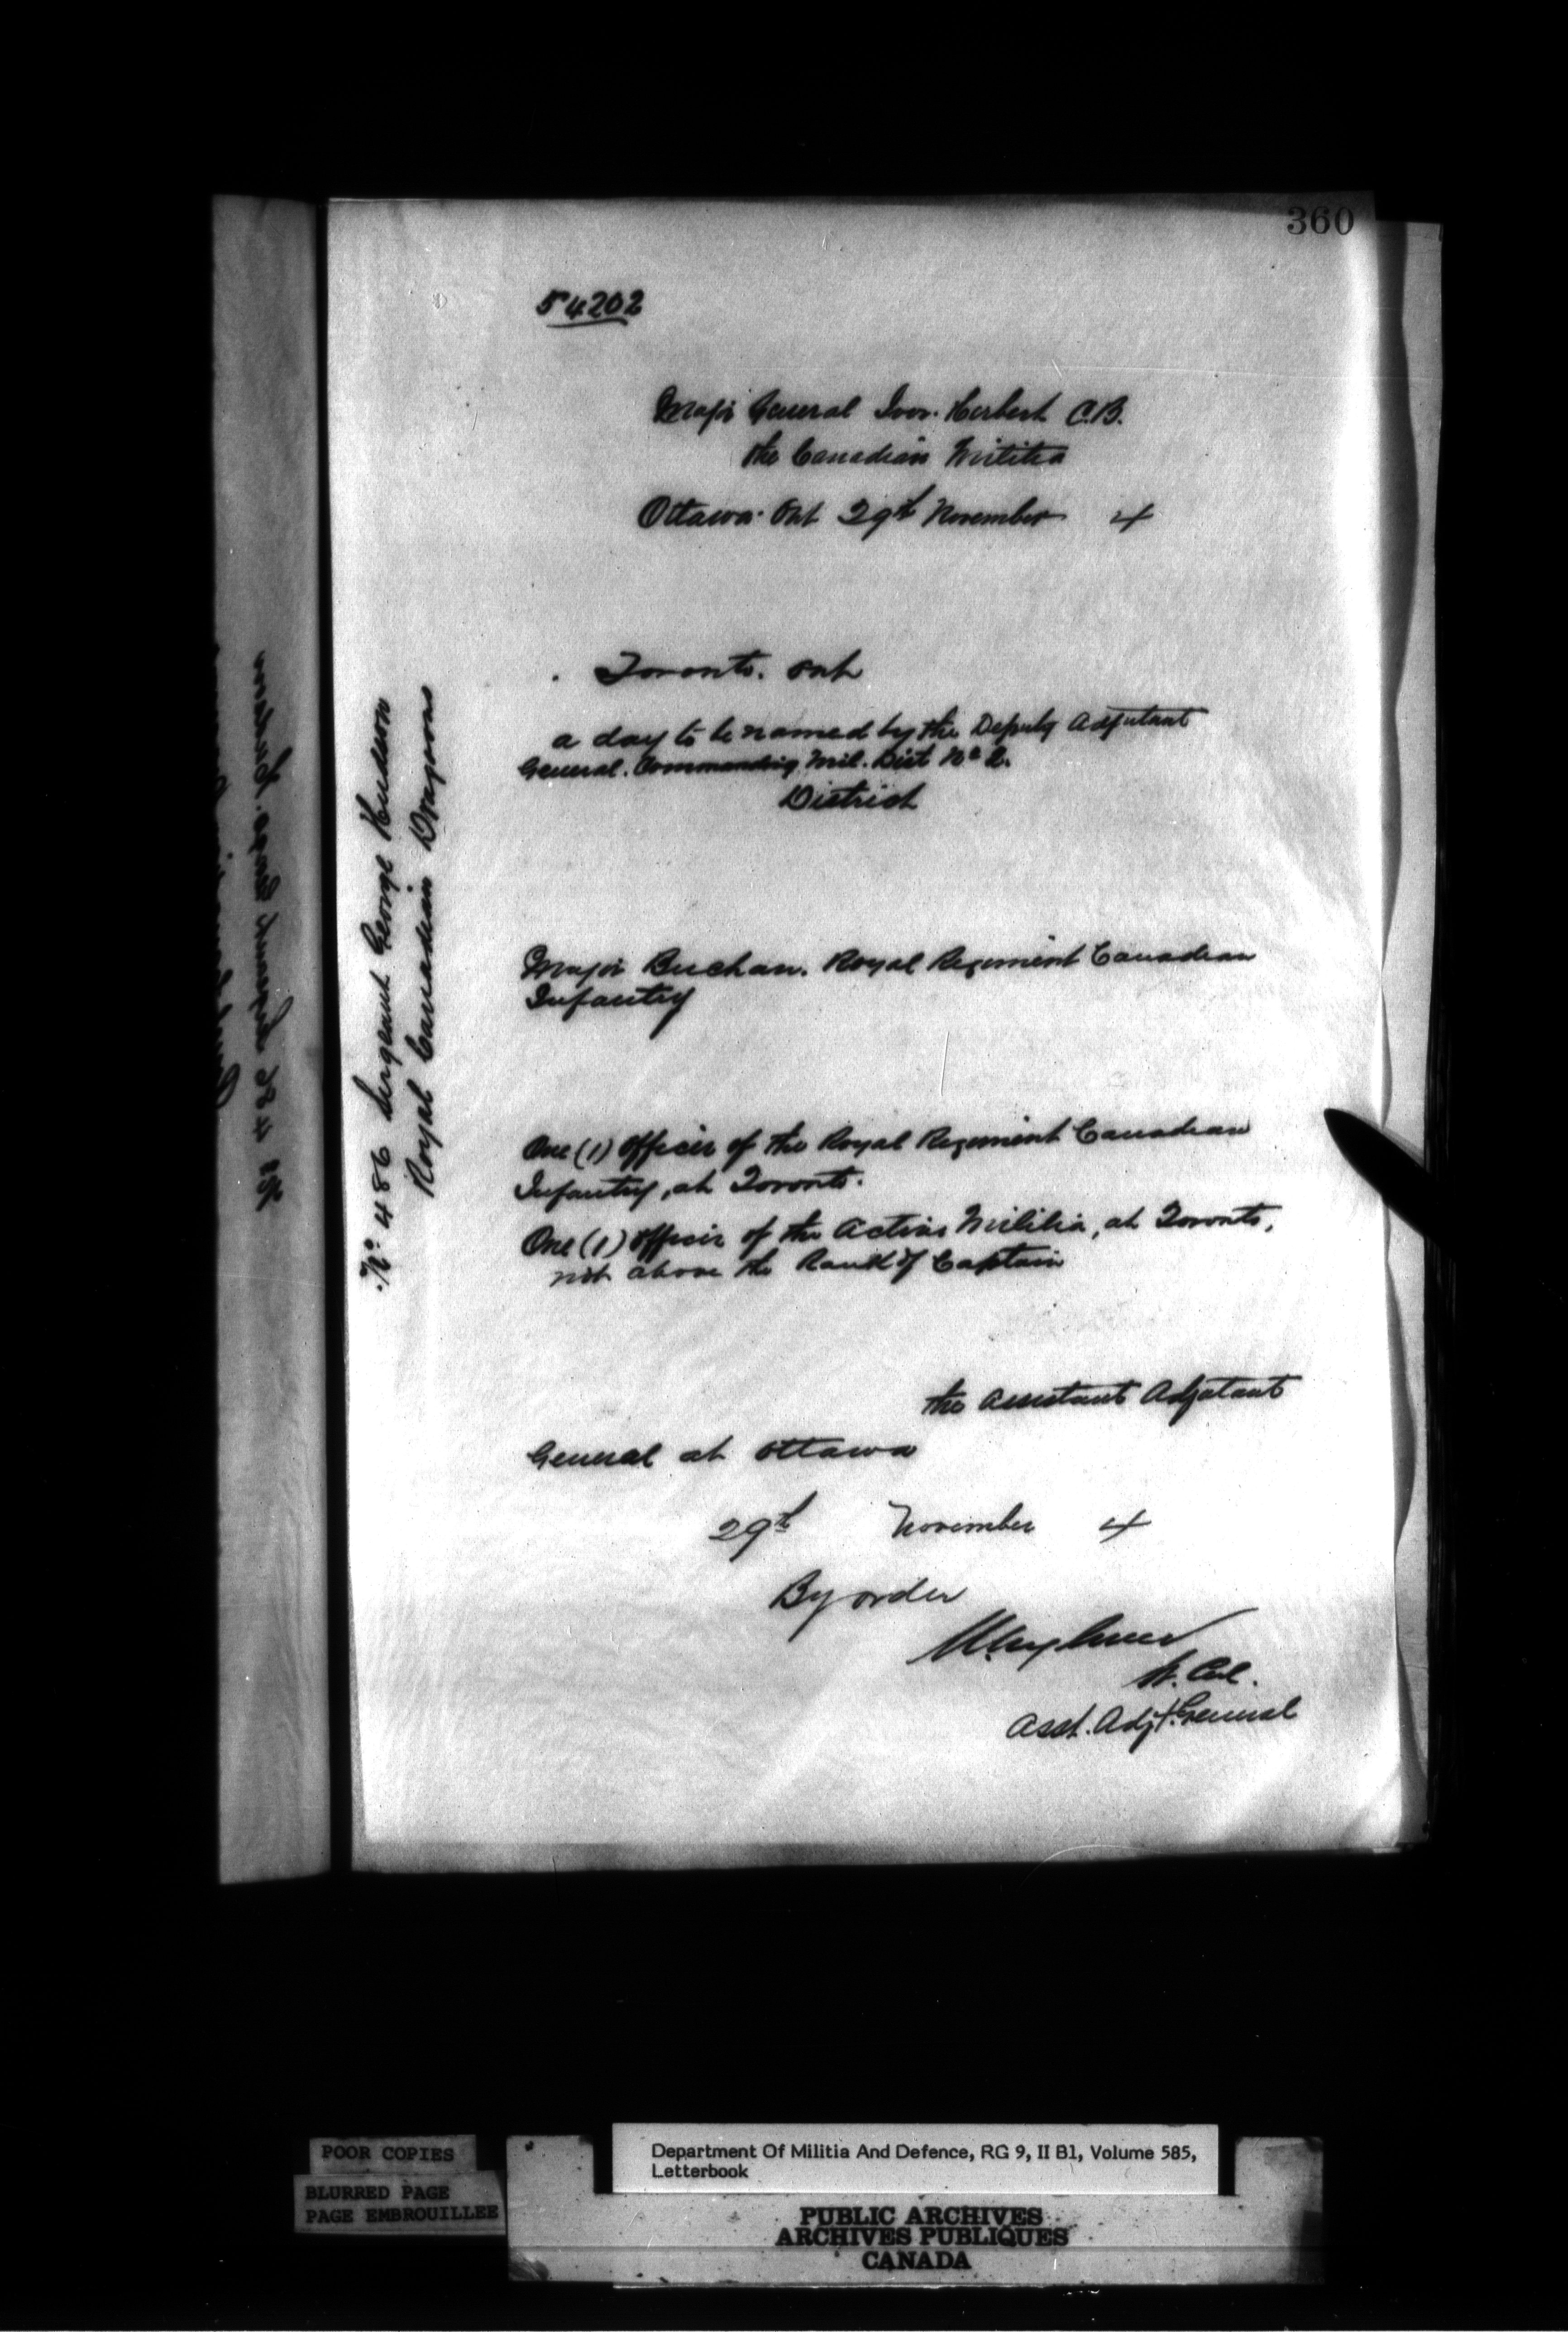 360
54202
Major General Ivor Herbert C.B.
the Canadian Militia
Ottawa Ont 29th November 4
Toronto. Ont
a day to be named by the Deputy Adjutant
General. Commanding Mil. Dist No 2.
District
No 486 Sergeant George Hudson
Royal Canadian Dragoons
Major Buchan. Royal Regiment Canadian
Infantry
One (1) Officer of the Royal Regiment Canadian
Infantry, at Toronto.
One (1) Officer of the Active Militia, at Toronto,
not above the Rank of Captain
the Assistant Adjutant
General at Ottawa
29th November 4
By order
Lt. Col.
Asst. Adjt. General
POOR COPIES
BLURRED PAGE
PAGE EMBROUILLEE
Department Of Militia And Defence, RG 9, II B1, Volume 585,
Letterbook
PUBLIC ARCHIVES
ARCHIVES PUBLIQUES
CANADA